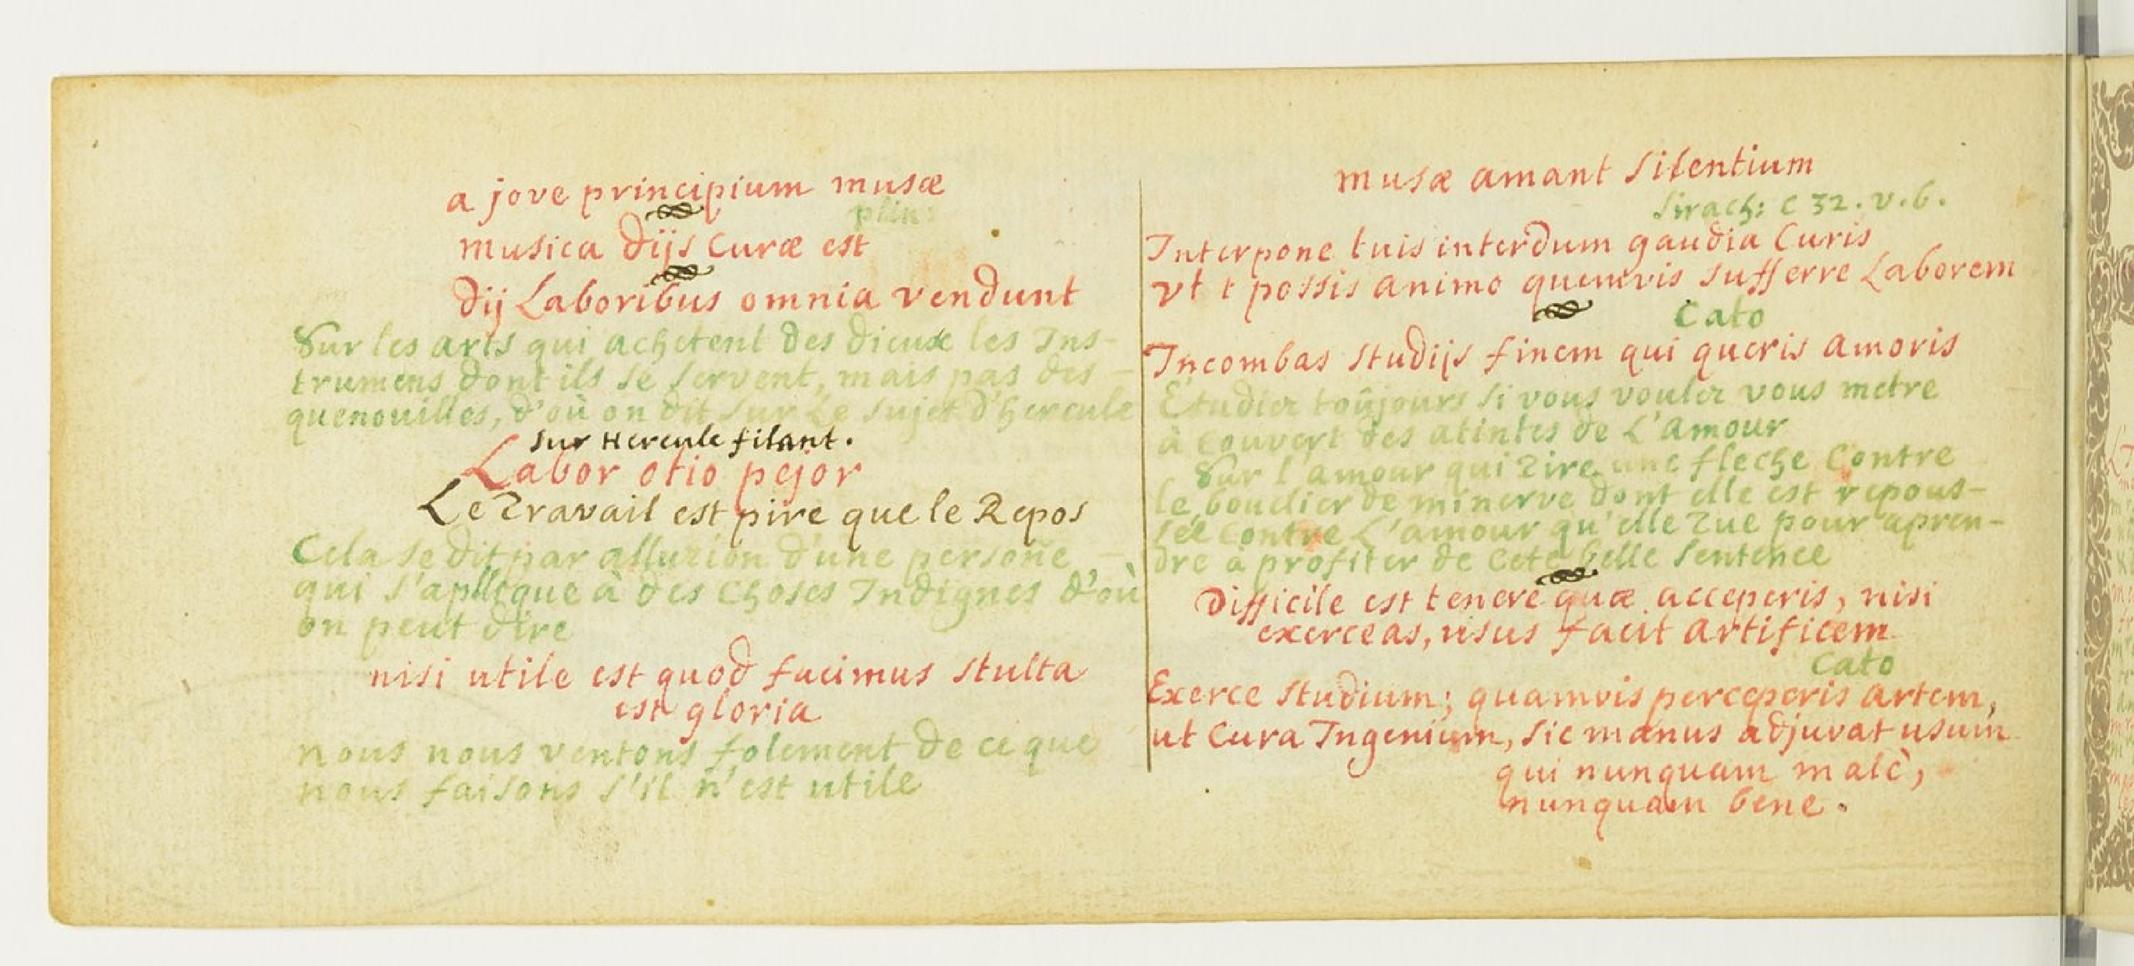 a jove principium musæ
plin:
musica dijs Curæ est
dij Laboribus omnia vendunt
Sur les arts qui achetent des dieux les Ins-
trumens dont ils se servent, mais pas des -
quenouilles, d'où on dit sur le sujet d'hercule
sur Hercule filant.
Labor otio pejor
Le Travail est pire que le Repos
Cela se dit par alluzion d'une persone -
qui s'aplicque à des Choses Indignes d'où
on peut dire
nisi utile est quod facimus stulta
est gloria
nous nous ventons folement de ce que
nous faisons s'il n'est utile
musæ amant silentium
Sirach: C 32. v. 6.
Interpone tuis interdum gaudia Curis
vt possis animo quemvis sufferre Laborem
Cato
Incombas studijs finem qui queris amoris
Etudier toûjours si vous voulez vous metre
à Couvert des atintes de L'amour
Sur l'amour qui Tire une fleche Contre
le bouclier de minerve dont elle est repous-
sée Contre L'amour qu'elle Tue pour apren-
dre à profiter de Cete belle Sentence
Difficile est tenere quæ acceperis, nisi
exerceas, usus facit artificem
Cato
Exerce studium; quamvis perceperis artem,
ut Cura Ingenium, sic manus adjuvat usum
qui nunquam malè,
nunquam bene.